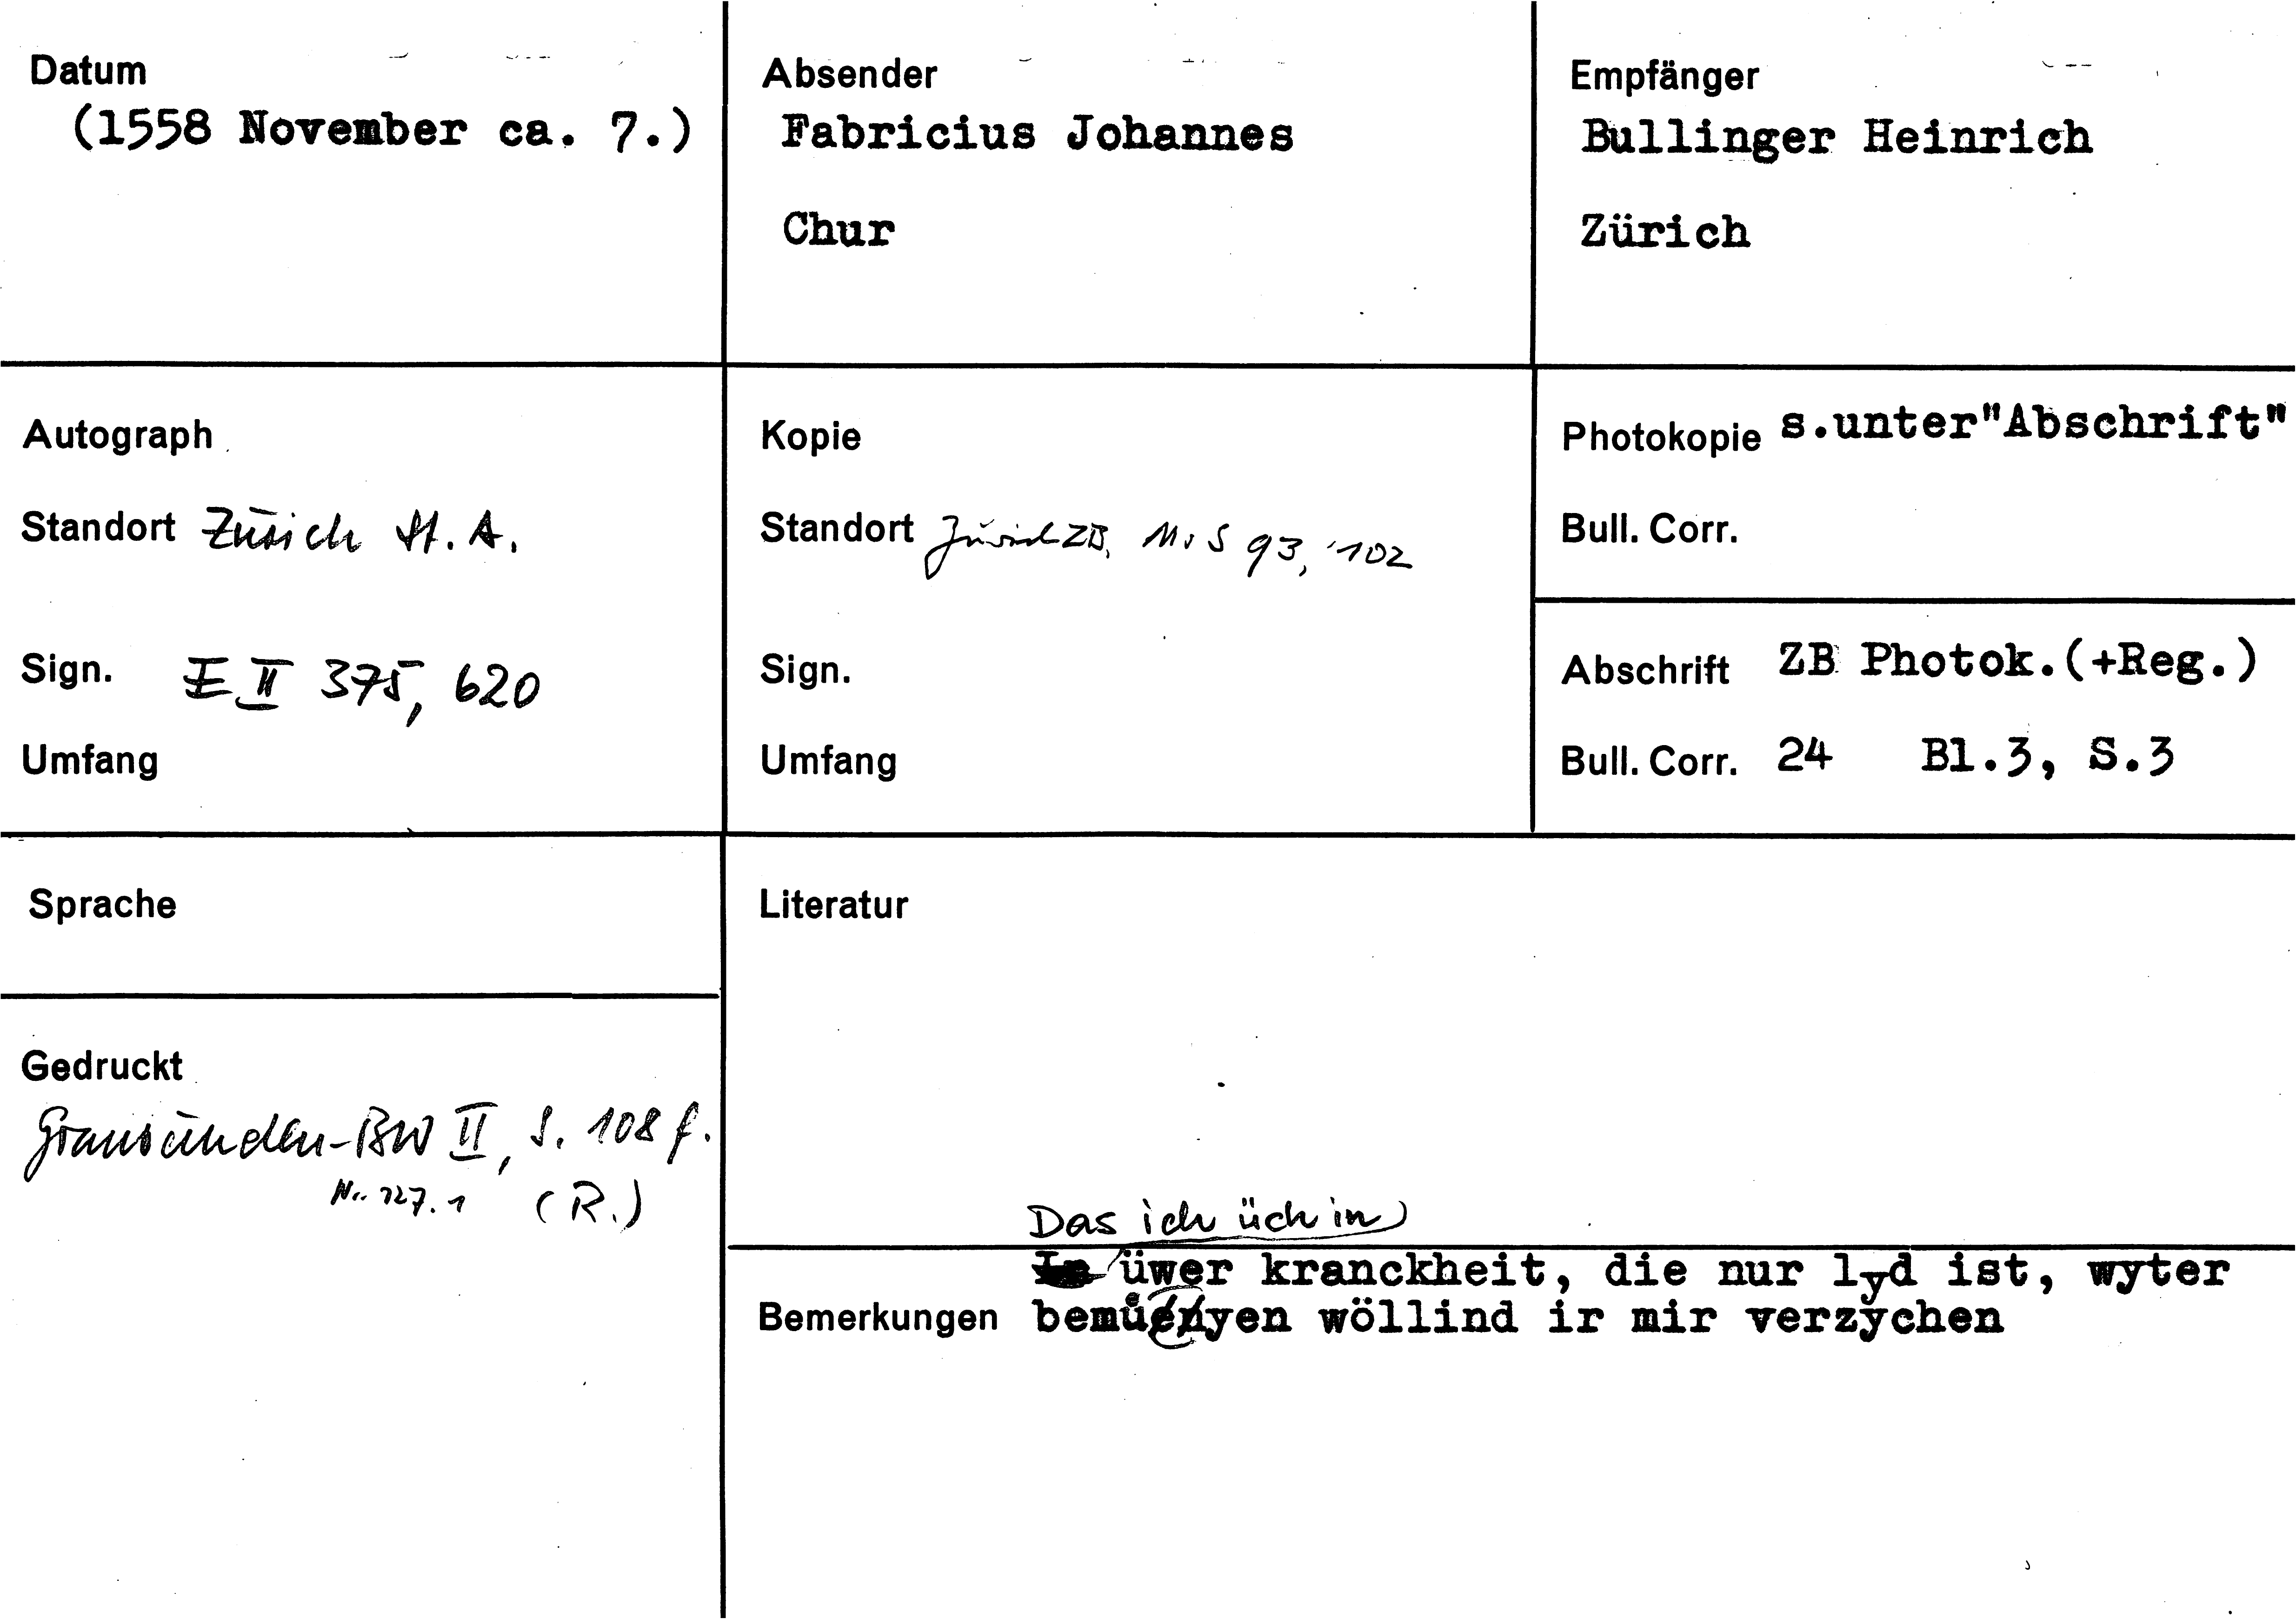 Datum
(1558 November ca. 7.)
Absender
Fabricius Johannes
Chur
Empfänger
Bullinger Heinrich
Zürich
Autograph
Standort Zürich St. A.
Sign. E II 375, 620
Umfang
Kopie
Standort Zürich ZB, Ms S 93, 102
Sign.
Umfang
Photokopie s.unter"Abschrift"
Bull. Corr.
Abschrift ZB Photok.(+Reg.)
Bull. Corr. 24 Bl.3, S.3
Sprache
Gedruckt
Graubünden-BW II, S. 108 f.
Nr. 127.1 (R.)
Literatur
Das ich üch in
üwer kranckheit, die nur lyd ist, wyter
Bemerkungen bemůeyen wöllind ir mir verzychen